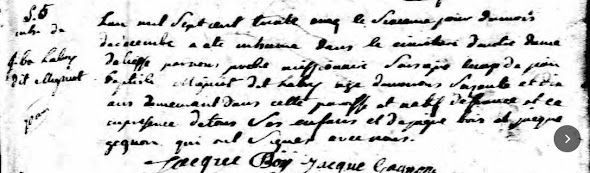 S. 5
de
J. Bte Labry
dit Majuret
Lan mil Sept cent trente cinq le Sixieme jour du mois
decembre a ete inhumé dans le cimetiere de notre dame
par nous pretre missionnaire Soussigné le corps de jean
baptiste Majuret dit labry agé denviron Soixante et dix
ans demeurant dans cette paroisse et natif de france et ce
en presence de tous Ses enfans et de jaque bois et jacque
gagnon qui ont Signés avec nous.
Jacque Boy Jacque Gagnon